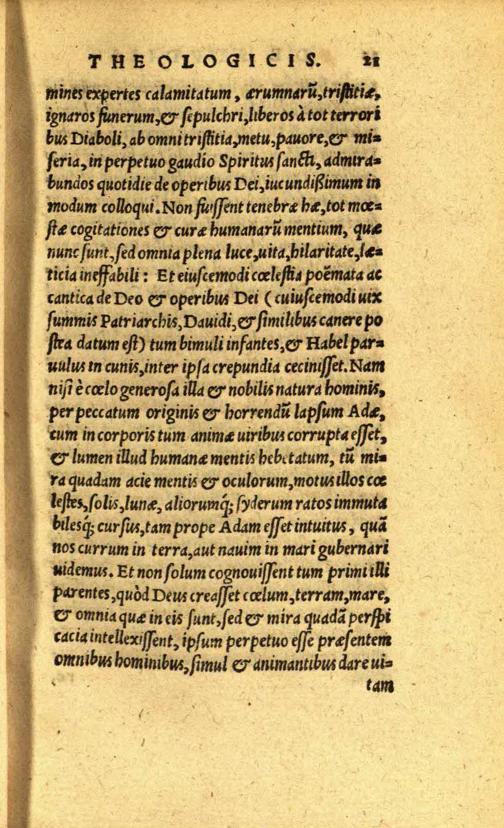 THEOLOGICIS. 21
mines expertes calamitatum, ærumnarū, tristitiæ,
ignaros funerum, & sepulchri, liberos à tot terrori
bus Diaboli, ab omni tristitia, metu, pauore, & mi=
seria, in perpetuo gaudio Spiritus sancti, admira=
bundos quotidie de operibus Dei, iucundißimum in
modum colloqui. Non fuissent tenebræ hæ, tot mœ=
stæ cogitationes & curæ humanarū mentium, quæ
nunc sunt, sed omnia plena luce, uita, hilaritate, læ=
ticia ineffabili: Et eiuscemodi cœlestia poëmata ac
cantica de Deo & operibus Dei (cuiuscemodi uix
summis Patriarchis, Dauidi, & similibus canere po
stea datum est) tum bimuli infantes, & Habel par=
uulus in cunis, inter ipsa crepundia cecinisset. Nam
nisi è cœlo generosa illa & nobilis natura hominis,
per peccatum originis & horrendū lapsum Adæ,
cum in corporis tum animæ uiribus corrupta esset,
& lumen illud humanæ mentis hebetatum, tū mi=
ra quadam acie mentis & oculorum, motus illos cœ
lestes, solis, lunæ, aliorumq́; syderum ratos immuta
bilesq́; cursus, tam prope Adam esset intuitus, quā
nos currum in terra, aut nauim in mari gubernari
uidemus. Et non solum cognouissent tum primi illi
parentes, quòd Deus creasset cœlum, terram, mare,
& omnia quæ in eis sunt, sed & mira quadā perspi
cacia intellexissent, ipsum perpetuo esse præsentem
omnibus hominibus, simul & animantibus dare ui=
tam